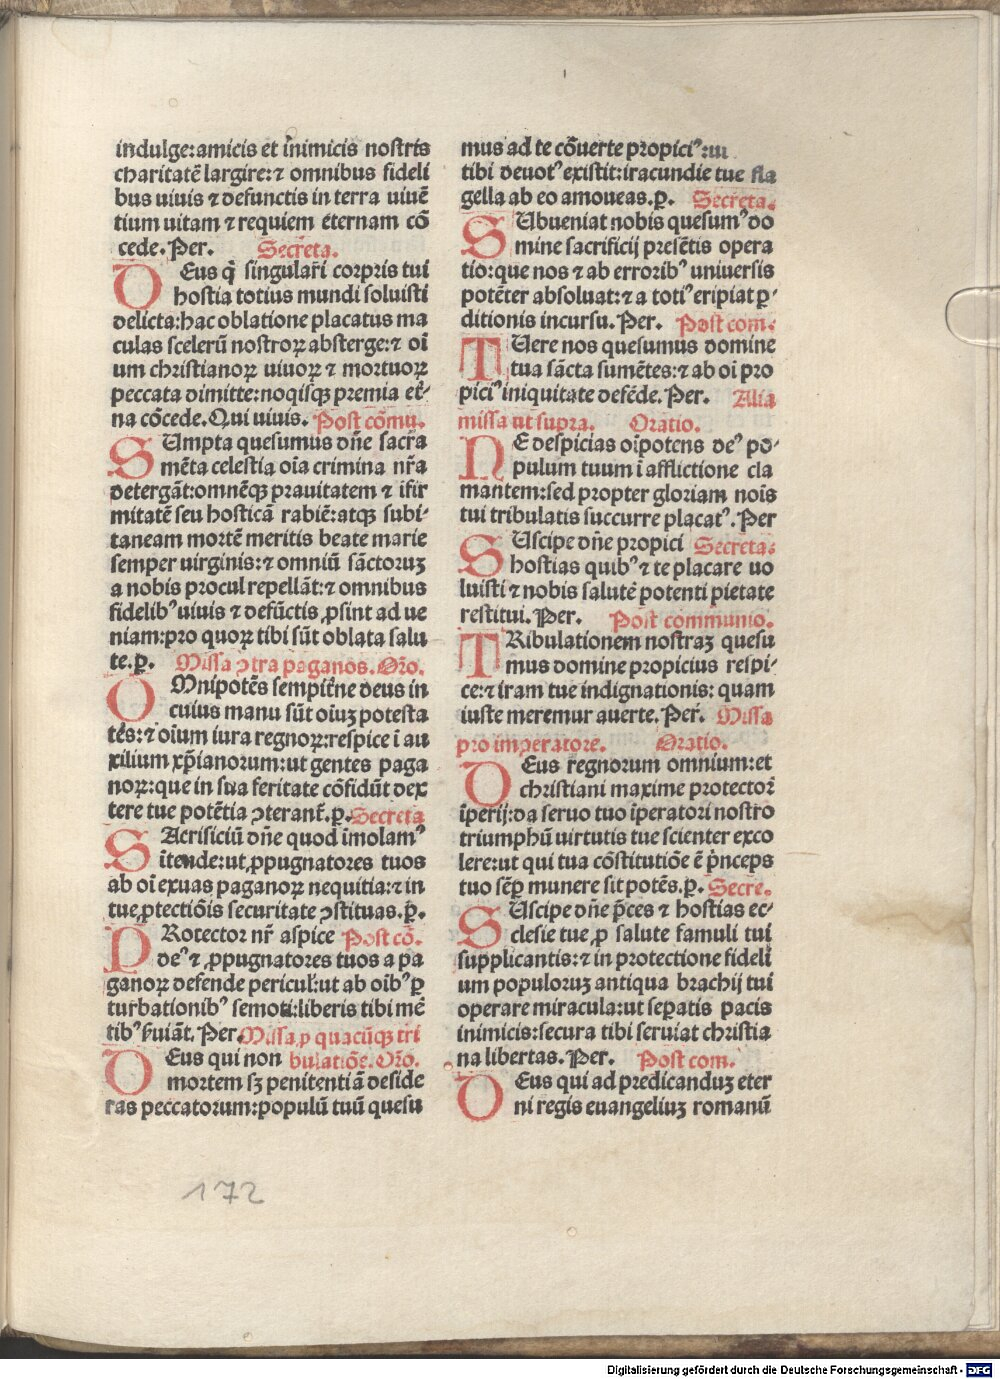 indulge: amicis et inimicis nostris
charitatē largire: ⁊ omnibus fideli
bus uiuis ⁊ defunctis in terra uiuē
tium uitam ⁊ requiem eternam cō
cede. Per. Secreta.
DEus q̄ singulari corpris tui
hostia totius mundi soluisti
delicta: hac oblatione placatus ma
culas scelerū nostroꝝ absterge: ⁊ oī
um christianoꝝ uiuoꝝ ⁊ mortuoꝝ
peccata dimitte: noqisqꝫ premia et̄-
na cōcede. Qui uiuis. Post cōmu.
SUmpta quesumus dn̄e sacra
mēta celestia oīa crimina nr̄a
detergāt: omnēqꝫ prauitatem ⁊ ifir
mitatē seu hosticā rabiē: atqꝫ subi-
taneam mortē meritis beate marie
semper uirginis: ⁊ omniū sāctoruꝫ
a nobis procul repellāt: ⁊ omnibus
fidelibꝰ uiuis ⁊ defūctis ꝓsint ad ue
niam: pro quoꝝ tibi sūt oblata salu
te. ꝑ. Missa ↄtra paganos. Or̄o.
OMnipotēs sempit̄ne deus in
cuius manu sūt oīuꝫ potesta
tes: ⁊ oīum iura regnoꝝ: respice ī au
xilium xp̄ianorum: ut gentes paga
noꝝ: que in sua feritate cōfidūt dex
tere tue potētia ↄterant̄. ꝑ. Secreta
SAcrisiciū dn̄e quod īmolamꝰ
ītende: ut ꝓpugnatores tuos
ab oī exuas paganoꝝ nequitia: ⁊ in
tue ꝓtectiōis securitate ↄstituas. ꝑ.
PRotector nr̄ aspice Post cō.
deꝰ ⁊ ꝓpugnatores tuos a pa
ganoꝝ defende pericul: ut ab oībꝰ ꝑ
turbationibꝰ semoti: liberis tibi mē
tibꝰ ẜuiāt. Per. Missa ꝓ quacūqꝫ tri
DEus qui non bulatiōe. Or̄o.
mortem sꝫ penitentiā deside
ras peccatorum: populū tuū quesu
mus ad te cōuerte propiciꝰ:
tibi deuotꝰ existit: iracundie tue fla
gella ab eo amoueas. ꝑ. Secreta.
SUbueniat nobis quesumꝰ do
mine sacrificij presētis opera
tio: que nos ⁊ ab erroribꝰ uniuersis
potēter absoluat: ⁊ a totiꝰ eripiat ꝑ-
ditionis incursu. Per. Post com.
TUere nos quesumus domine
tua sācta sumētes: ⁊ ab oī pro
piciꝰ iniquitate defēde. Per. Alia
missa ut supra. Oratio.
NE despicias oīpotens deꝰ po-
pulum tuum ī afflictione cla
mantem: sed propter gloriam nois
tui tribulatis succurre placatꝰ. Per
SUscipe dn̄e propici Secreta.
hostias quibꝰ ⁊ te placare uo
luisti ⁊ nobis salutē potenti pietate
restitui. Per. Post communio.
TRibulationem nostraꝫ quesu
mus domine propicius respi-
ce: ⁊ iram tue indignationis: quam
iuste meremur auerte. Per. Missa
pro imperatore. Oratio.
DEus regnorum omnium: et
christiani maxime protector
īperij: da seruo tuo īperatori nostro
triumphū uirtutis tue scienter exco
lere: ut qui tua cōstitutiōe ē p̄nceps
tuo sēꝑ munere sit potēs. ꝑ. Secre.
SUscipe dn̄e p̄ces ⁊ hostias ec-
clesie tue ꝓ salute famuli tui
supplicantis: ⁊ in protectione fideli
um populoruꝫ antiqua brachij tui
operare miracula: ut seꝑatis pacis
inimicis: secura tibi seruiat christia
na libertas. Per. Post com.
DEus qui ad predicanduꝫ eter
ni regis euangeliuꝫ romanū
172
Digitalisierung gefördert durch die Deutsche Forschungsgemeinschaft - DFG